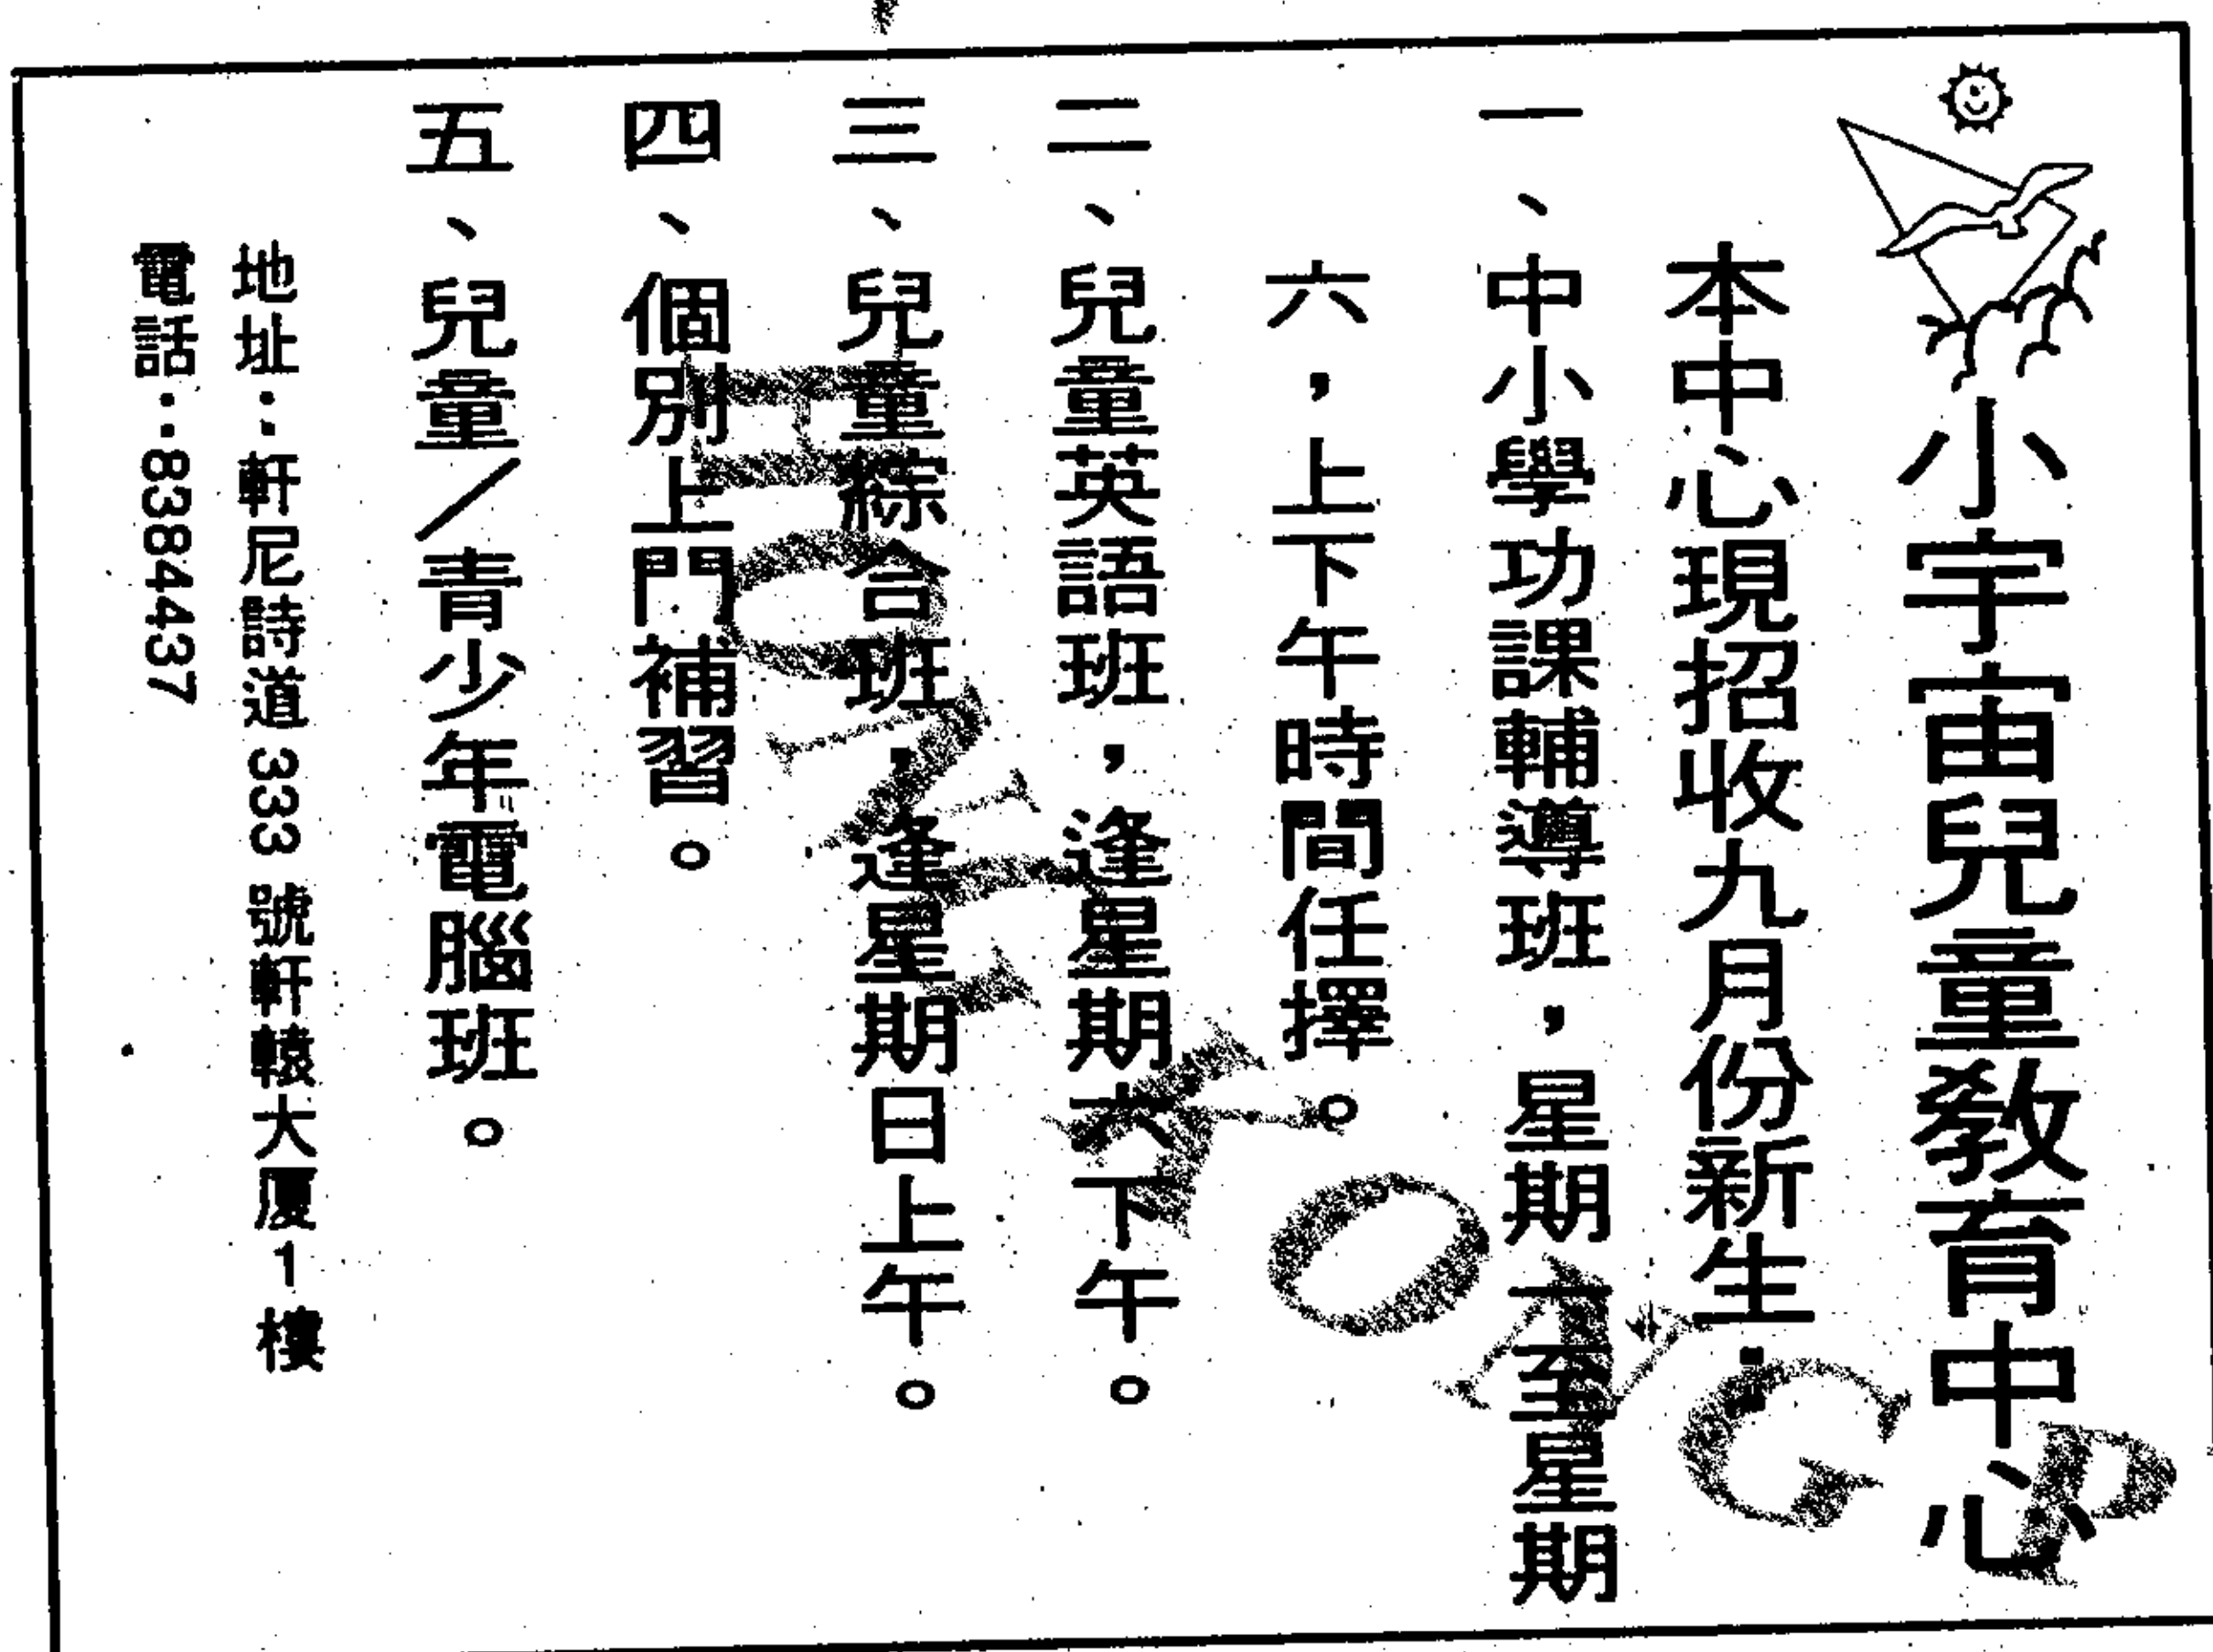 小宇宙兒童教育中心
本中心現招收九月份新生：
一、中小學功課輔導班，星期一至星期
六，上下午時間任擇。
二、兒童英語班，逢星期六下午。
三、兒童綜合班，逢星期日上午。
四、個別上門補習。
五、兒童／青少年電腦班。
地址：軒尼詩道 333 號軒轅大廈 1 樓
電話：8384437